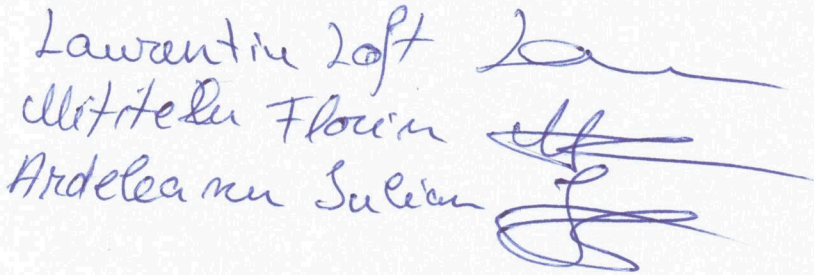 Laurentiu Loft
Mititelu Florin
Ardeleanu Iulian